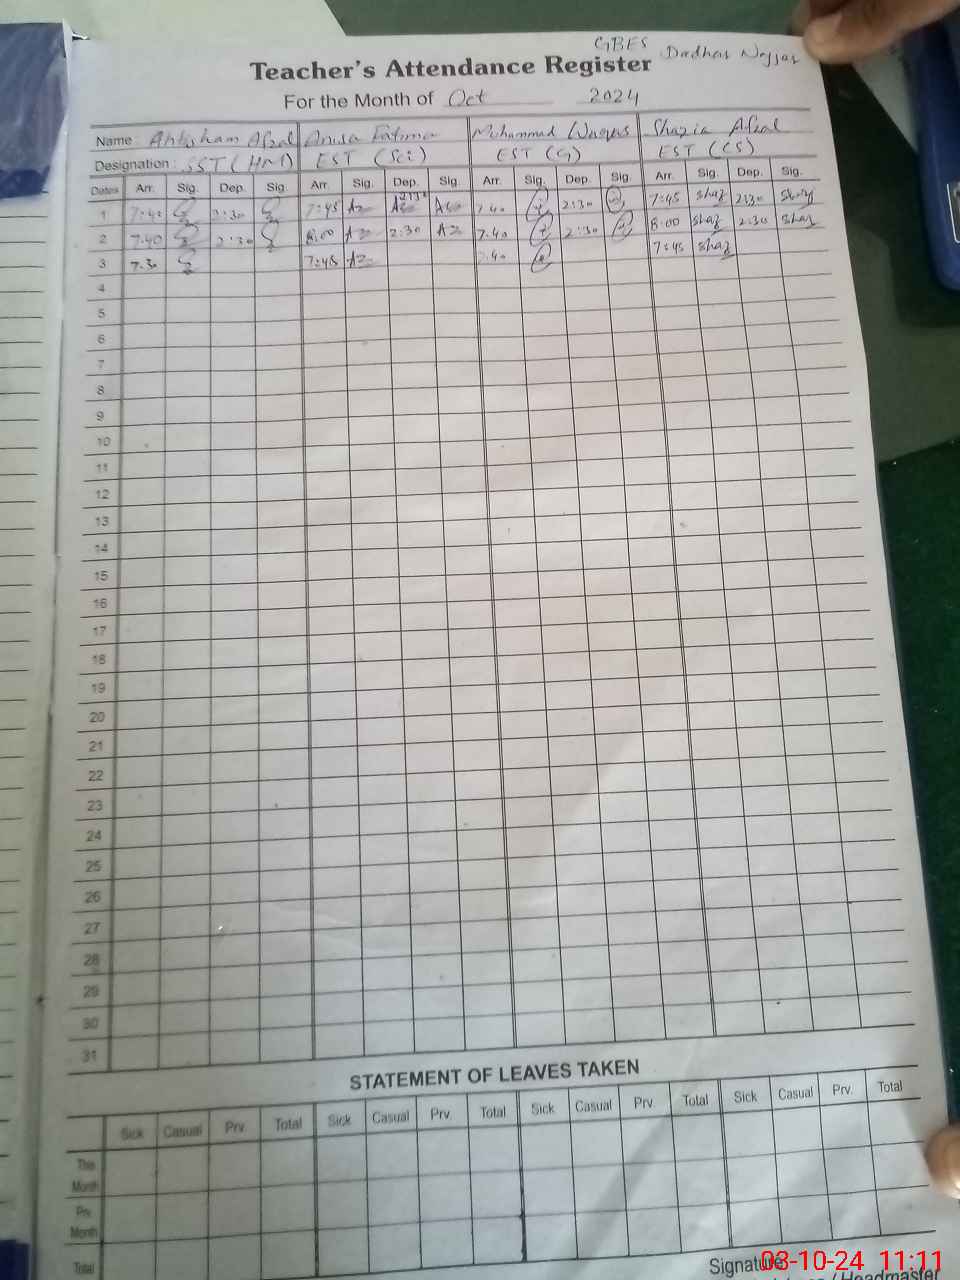 GBES
Teacher's Attendance Register
For the Month of Oct 2024
Name: Ahtisham Afzal Anisa Fatima Muhammad Waqas Shazia Afzal
Designation: SST (HM) EST (Sci) EST (G) EST (CS)
Dates Arr. Sig. Dep. Sig. Arr. Sig. Dep. Sig. Arr. Sig. Dep. Sig. Arr. Sig. Dep. Sig.
1 7:40 2:30 7:45 Az 7.40 2:30 7:45 Shaz 2:30 Shaz
2 7.40 2:30 8:00 Az 2:30 Az 7.40 2:30 8:00 Shaz 2:30 Shaz
3 7.30 7:45 Az 7.40 7:45 Shaz
4
5
6
7
8
9
10
11
12
13
14
15
16
17
18
19
20
21
22
23
24
25
26
27
28
29
30
31
STATEMENT OF LEAVES TAKEN
Sick Casual Prv. Total Sick Casual Prv. Total Sick Casual Prv. Total Sick Casual Prv. Total
This
Month
Prv.
Month
Total
Signature
03-10-24 11:11
/ Headmaster